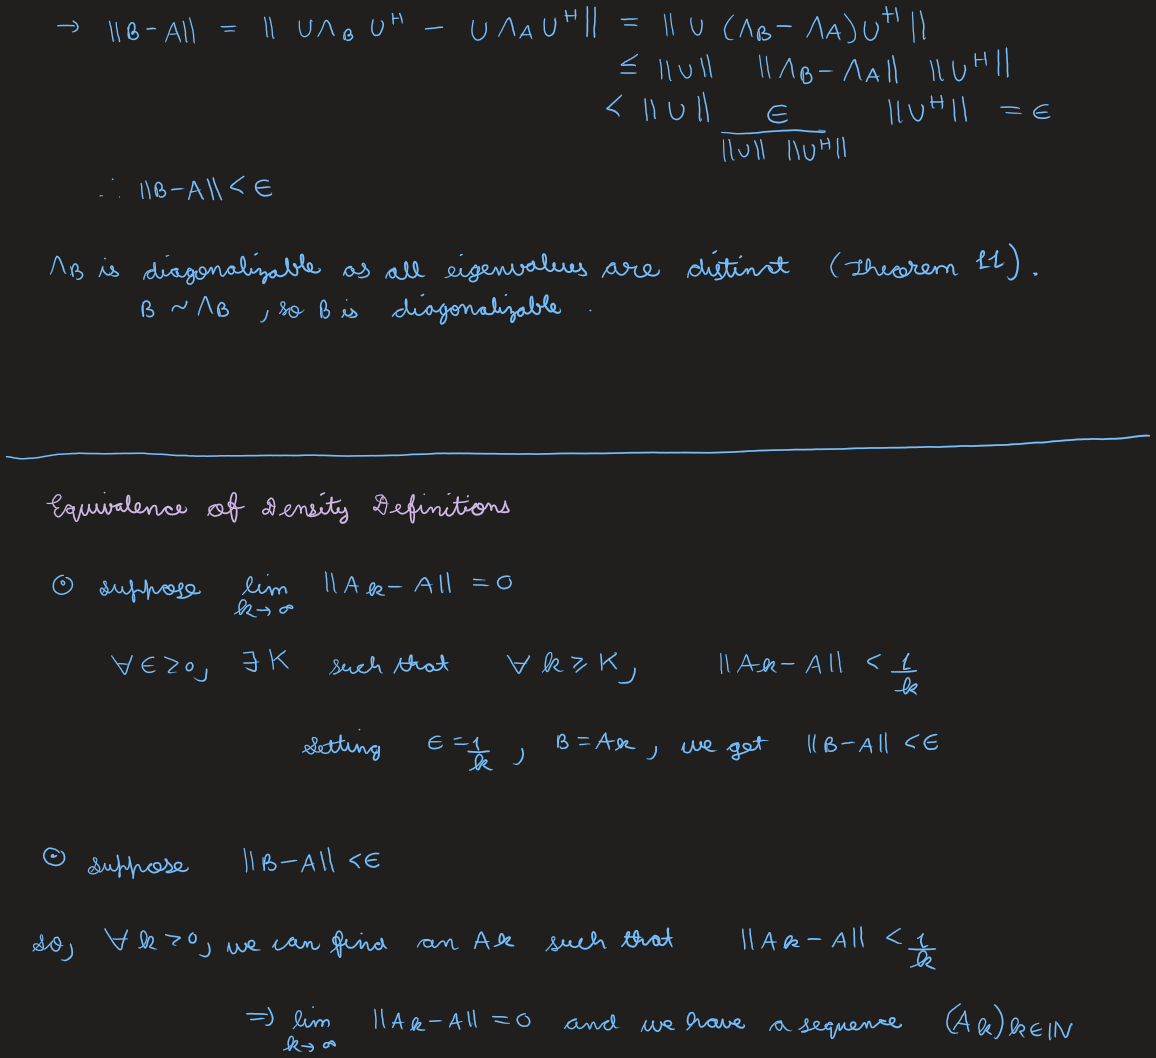 → ||B-A|| = || UΛ_B U^H - UΛ_A U^H || = || U (Λ_B - Λ_A) U^H ||
≤ ||U|| ||Λ_B - Λ_A|| ||U^H||
< ||U|| ∈/(||U|| ||U^H||) ||U^H|| = ∈
∴ ||B-A|| < ∈
Λ_B is diagonalizable as all eigenvalues are distinct (Theorem 11).
B ~ Λ_B , so B is diagonalizable .
Equivalence of Density Definitions
⊙ suppose lim_{k→∞} ||A_k - A|| = 0
∀ ∈ ≥ 0, ∃ K such that ∀ k ≥ K, ||A_k - A|| < 1/k
setting ∈ = 1/k , B = A_k , we get ||B-A|| < ∈
⊙ suppose ||B-A|| < ∈
so, ∀ k > 0, we can find an A_k such that ||A_k - A|| < 1/k
⇒ lim_{k→∞} ||A_k - A|| = 0 and we have a sequence (A_k)_{k∈ℕ}